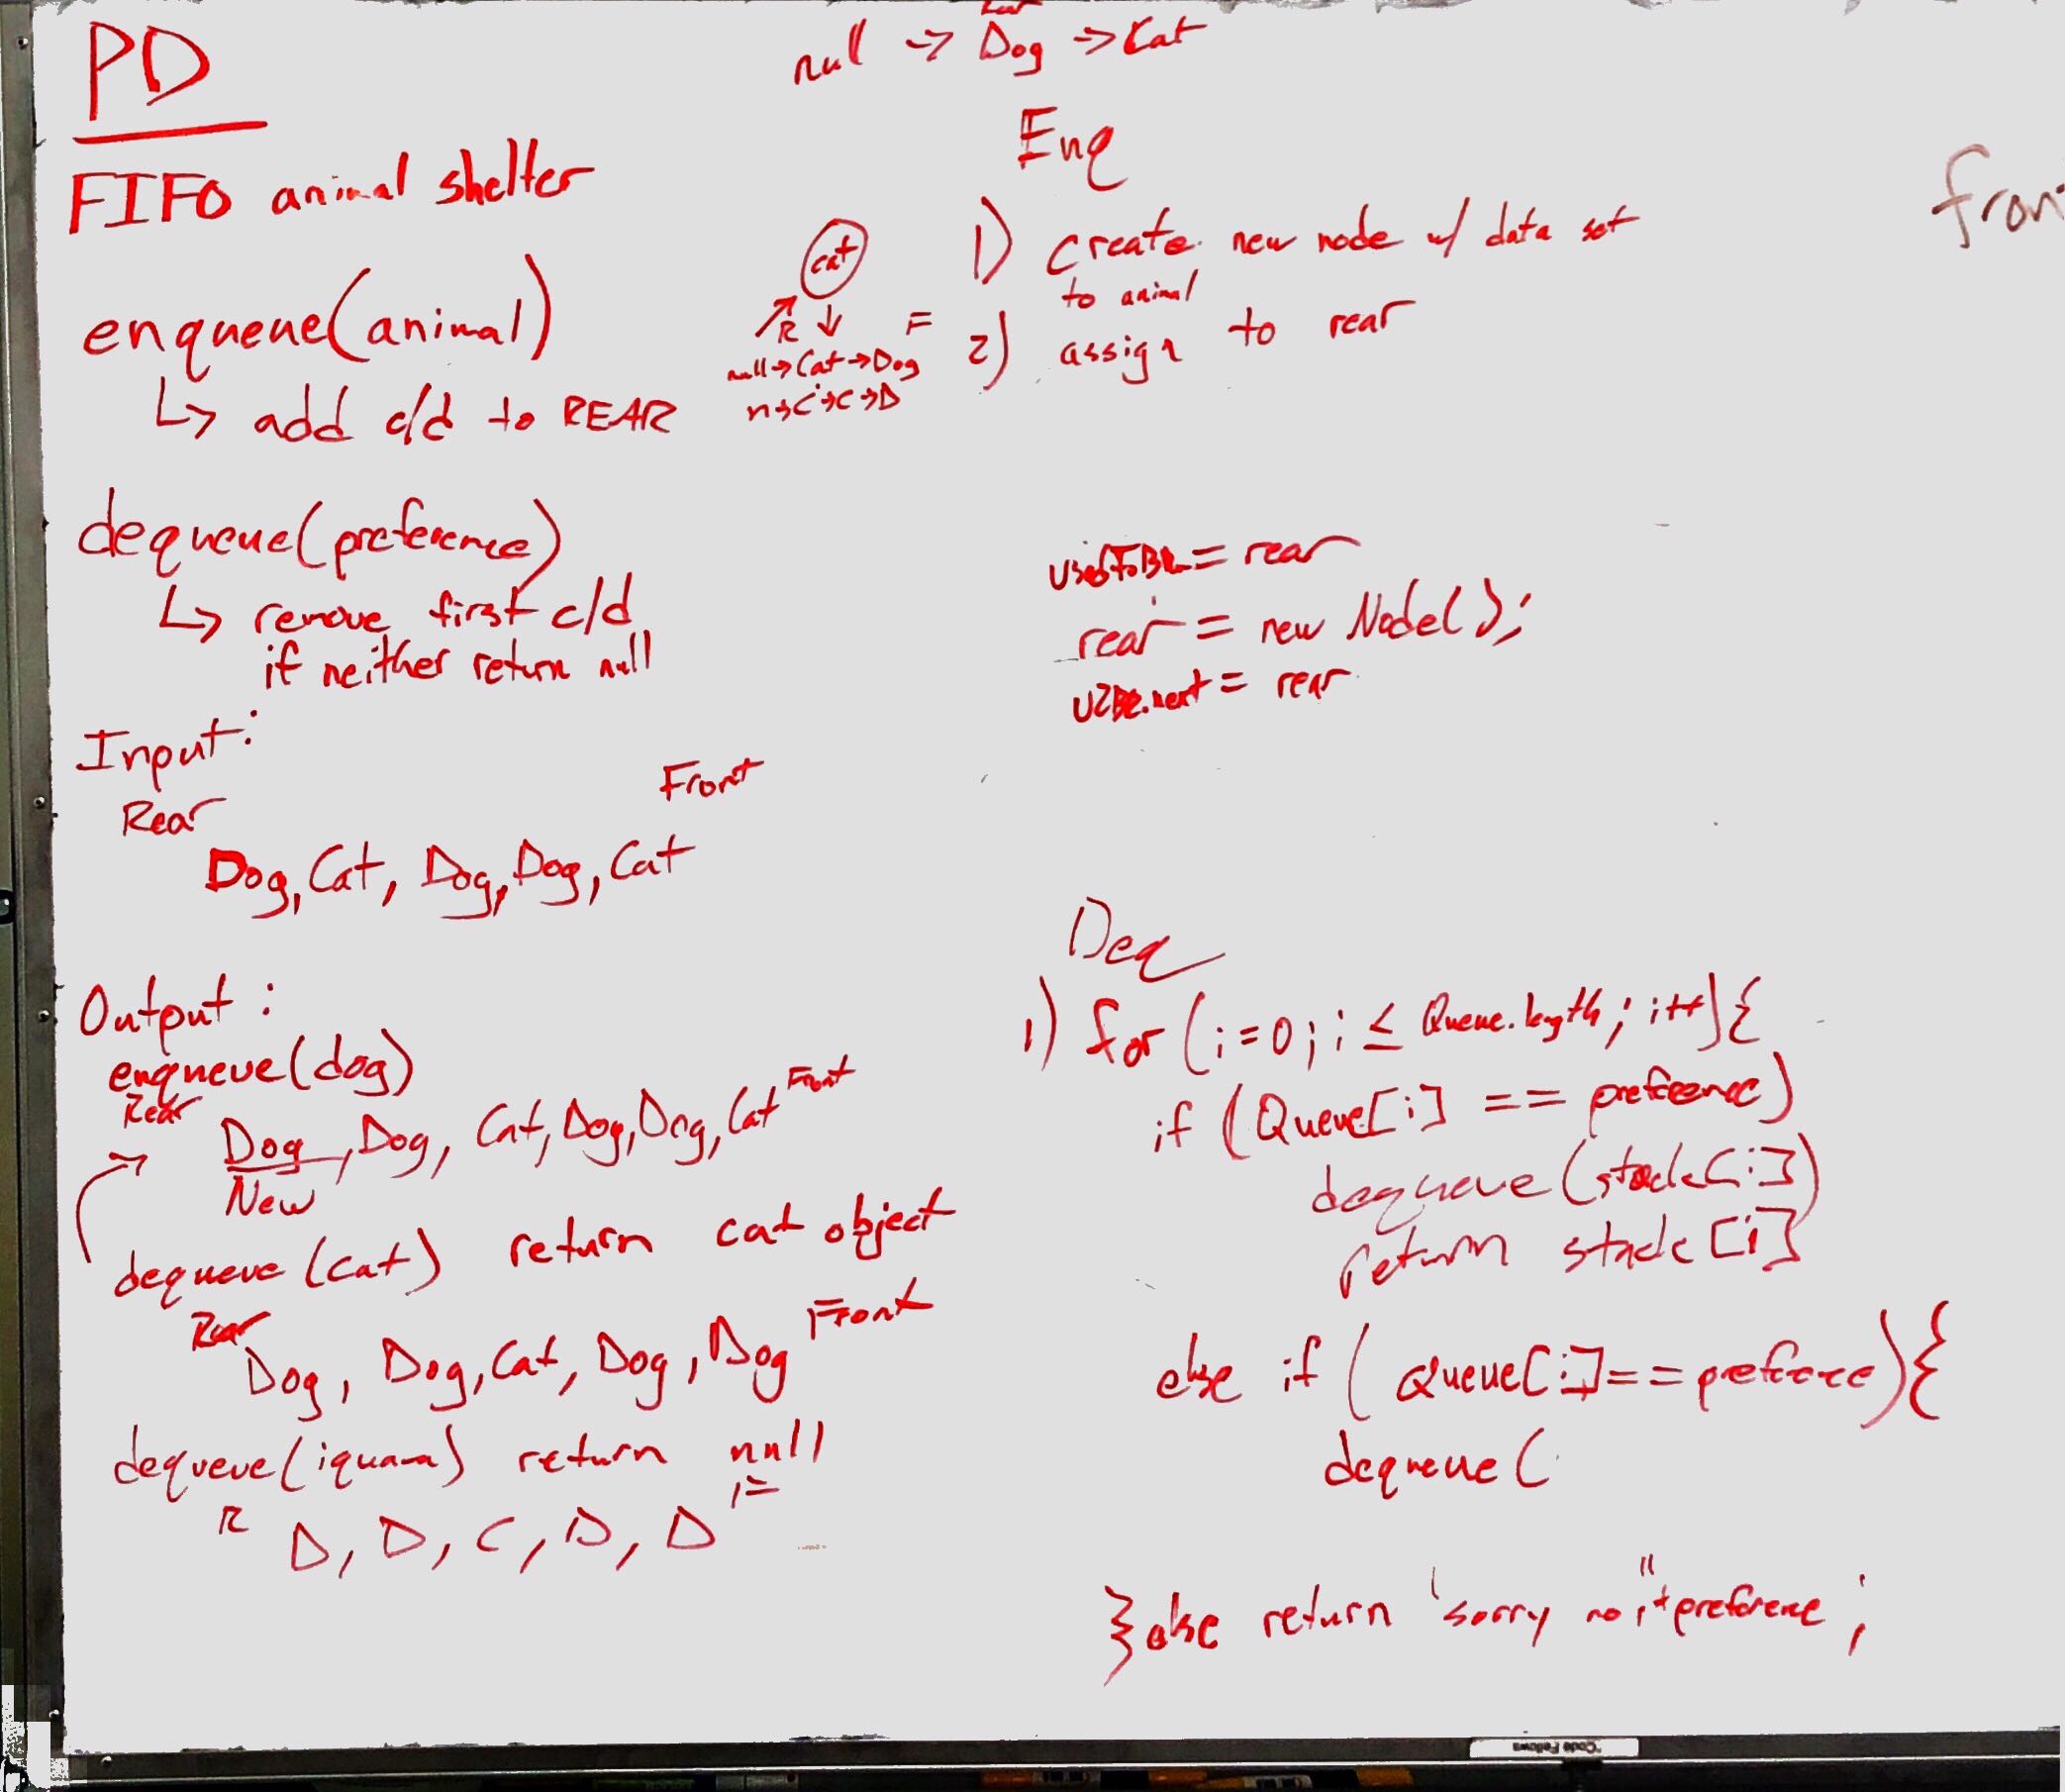 PD
FIFO animal shelter
enqueue(animal)
↳ add c/d to REAR
dequeue(preference)
↳ remove first c/d
if neither return null
Input:
Rear Front
Dog, Cat, Dog, Dog, Cat
Output:
enqueue(dog)
Rear Front
Dog, Dog, Cat, Dog, Dog, Cat
New
dequeue(cat) return cat object
Rear Front
Dog, Dog, Cat, Dog, Dog
dequeue(iquana) return null
R F
D, D, C, D, D
null → Dog → Cat
Enq
cat
R F
null→Cat→Dog
n→C→C→D
1) create new node w/ data set
to animal
2) assign to rear
usedToBe = rear
rear = new Node();
U2Be.next = rear
Deq
1) for (i=0; i ≤ Queue.length; i++){
if (Queue[i] == preference)
dequeue(stack[i])
return stack[i]
else if (Queue[i]==preference){
dequeue(
} else return 'sorry no "+preference;
fron
"Code Fellows